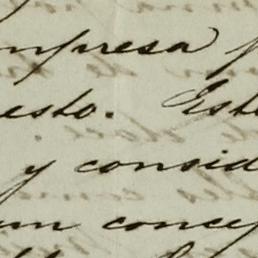 mpresa p
esto. Est
y consid
um concep